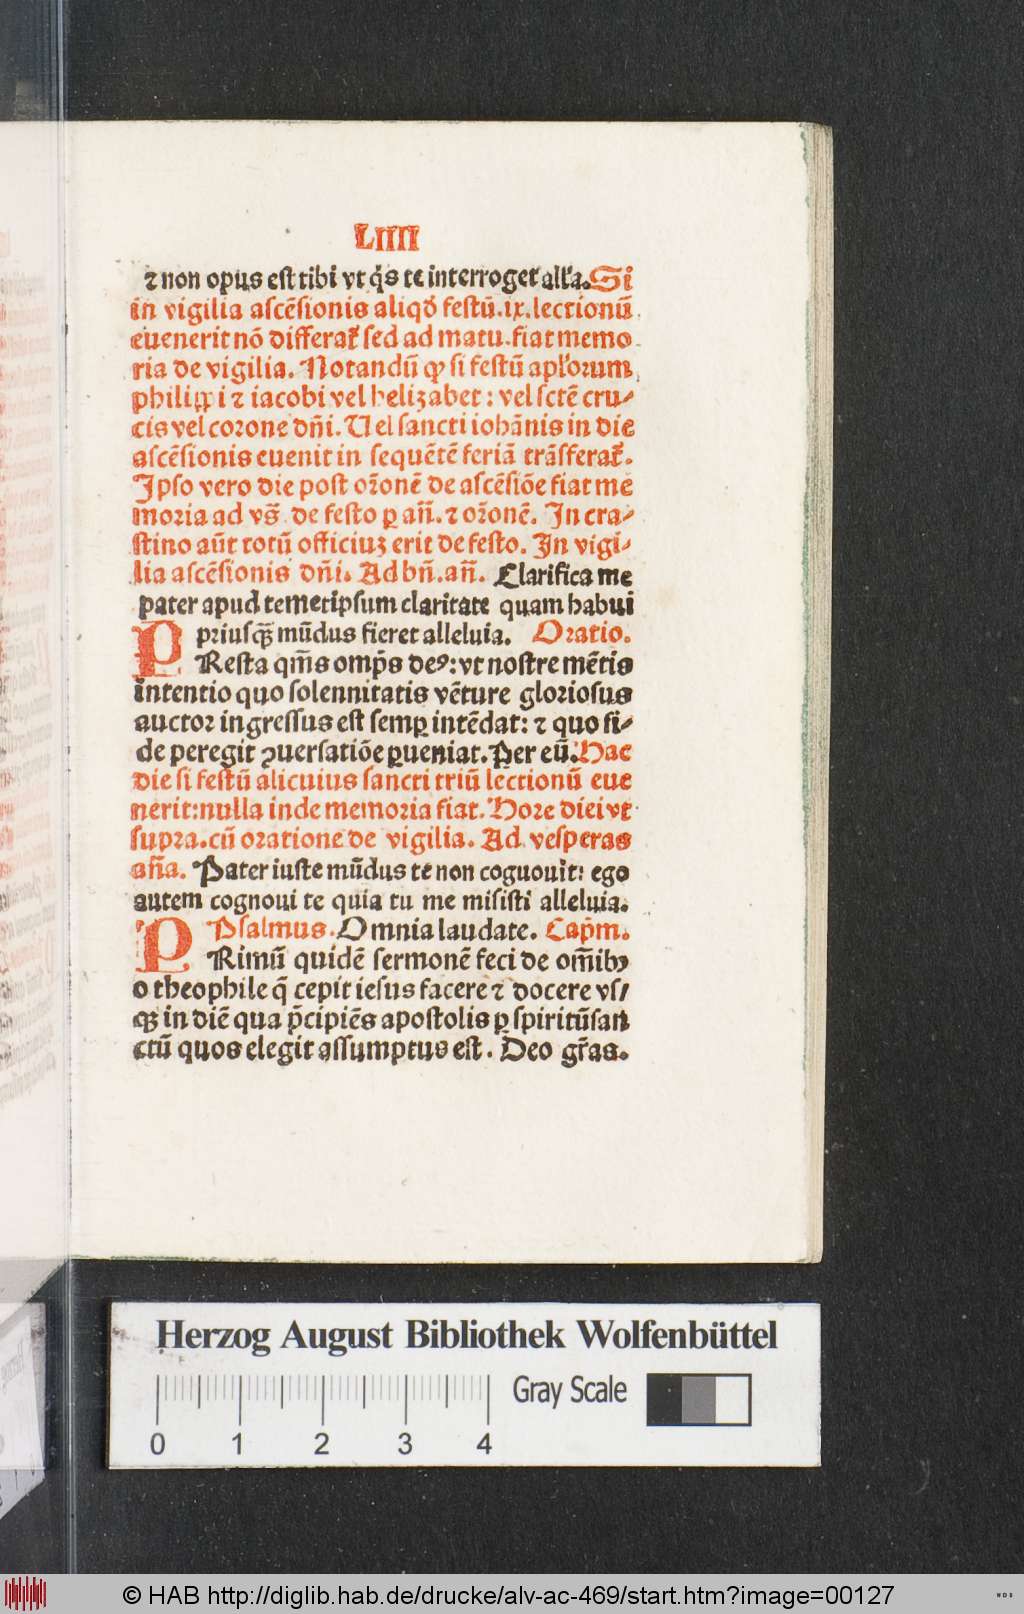 LIIII
⁊ non opus est tibi vt q̃s te interroget all'a. Si
in vigilia ascẽsionis aliqď festũ.ix.lectionũ
euenerit nõ differat᷑ sed ad matu.fiat memo
ria de vigilia. Notandũ ꝙ si festũ apl'orum
philiꝑpi ⁊ iacobi vel helizabet: vel sctẽ cru⸗
cis vel corone dñi. Uel sancti iohãnis in die
ascẽsionis euenit in sequẽtẽ feriã trãsferat᷑.
Ipso vero die post oȓonẽ de ascẽsiõe fiat me
moria ad vs̃ de festo ꝑ añ. ⁊ oȓonẽ. In cra⸗
stino aũt totũ officiuꝫ erit de festo. In vigi⸗
lia ascẽsionis dñi. Ad bñ.añ. Clarifica me
pater apud temetipsum claritate quam habui
priusq̃ʒ mũdus fieret alleluia. Oratio.
PResta qm̃s omp̃s deꝰ: vt nostre mẽtis
intentio quo solennitatis vẽture gloriosus
auctor ingressus est semꝑ intẽdat: ⁊ quo fi⸗
de peregit ꝯuersatiõe ꝑueniat. Per eũ. Hac
die si festũ alicuius sancti triũ lectionũ eue
nerit:nulla inde memoria fiat. Hore diei vt
supra.cũ oratione de vigilia. Ad vesperas
aña. Pater iuste mũdus te non coguouit: ego
autem cognoui te quia tu me misisti alleluia.
Psalmus. Omnia laudate. Cap̃m.
PRimũ quidẽ sermonẽ feci de om̃ibꝰ
o theophile q̃ cepit iesus facere ⁊ docere vs⸗
qꝫ in diẽ qua p̃cipiẽs apostolis ꝑ spiritũ san
ctũ quos elegit assumptus est. Deo gr̃as.
Herzog August Bibliothek Wolfenbüttel
0 1 2 3 4 Gray Scale
© HAB http://diglib.hab.de/drucke/alv-ac-469/start.htm?image=00127